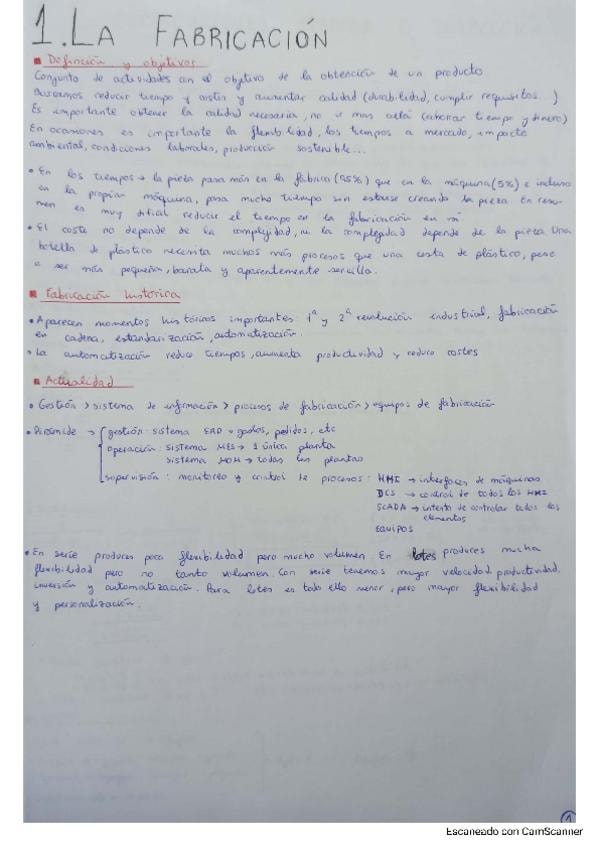 1. LA FABRICACIÓN
Definición y objetivos
Conjunto de actividades con el objetivo de la obtención de un producto
Buscamos reducir tiempo y costes y aumentar calidad (durabilidad, cumplir requisitos...)
Es importante obtener la calidad necesaria, no ir mas allá (ahorrar tiempo y dinero)
En ocasiones es importante la flexibilidad, los tiempos a mercado, impacto
ambiental, condiciones laborales, producción sostenible...
• En los tiempos → la pieza pasa más en la fábrica (95%) que en la máquina (5%) e incluso
en la propia máquina, pasa mucho tiempo sin estarse creando la pieza. En resu-
men es muy dificil reducir el tiempo en la fabricación en sí
• El coste no depende de la complejidad, ni la complejidad depende de la pieza. Una
botella de plástico necesita muchos más procesos que una de plástico, pese
a ser más pequeña, barata y aparentemente sencilla.
Fabricación historica
• Aparecen momentos históricos importantes 1ª y 2ª revolución industrial, fabricación
en cadena, estandarización, automatización.
• La automatización reduce tiempos, aumenta productividad y reduce costes
Actualidad
• Gestión > sistema de información > procesos de fabricación > equipos de fabricación
• Pirámide → gestión: sistema pedidos, etc
operación: sistema MES → 1 única planta
sistema MOM → todas las plantas
supervisión: monitoreo y control de procesos: HMI → interfaces de máquinas
DCS → control de todos los HMI
SCADA → intento de controlar todos los
elementos
EQUIPOS
• En serie produces poca flexibilidad pero mucho volumen. En lotes produces mucha
flexibilidad pero no tanto volumen. Con serie tenemos mayor velocidad, productividad,
inversión y automatización. Para lotes es todo ello menor, pero mayor flexibilidad
y personalización.
1
Escaneado con CamScanner